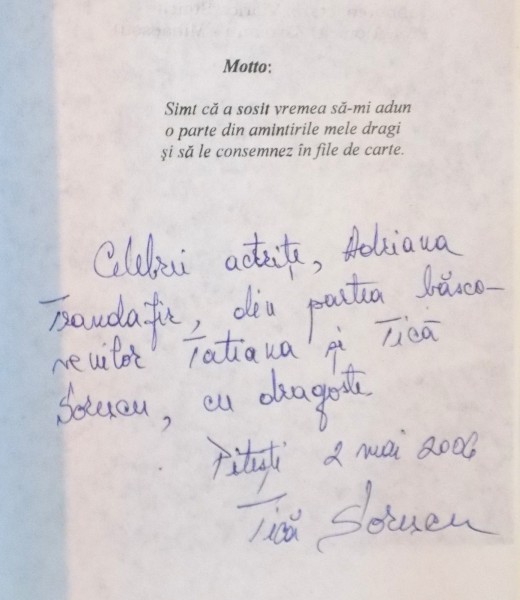 Motto:
Simt că a sosit vremea să-mi adun
o parte din amintirile mele dragi
și să le consemnez în file de carte.
Celebrei actrițe, Adriana
Trandafir, din partea băsco-
venilor Tatiana și Tică
Sorescu, cu dragoste
Pitești 2 mai 2006
Tică Sorescu